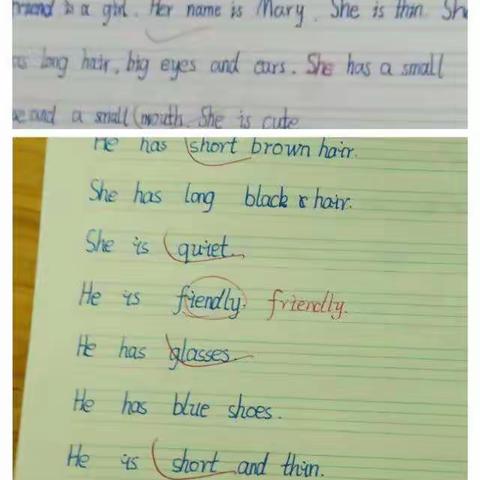 is a girl. Her name is Mary. She is thin. She
long hair, big eyes and ears. She has a small
and a small mouth. She is cute
He has short brown hair.
She has long black hair.
She is quiet.
He is fiendly. friendly.
He has glasses.
He has blue shoes.
He is short and thin.